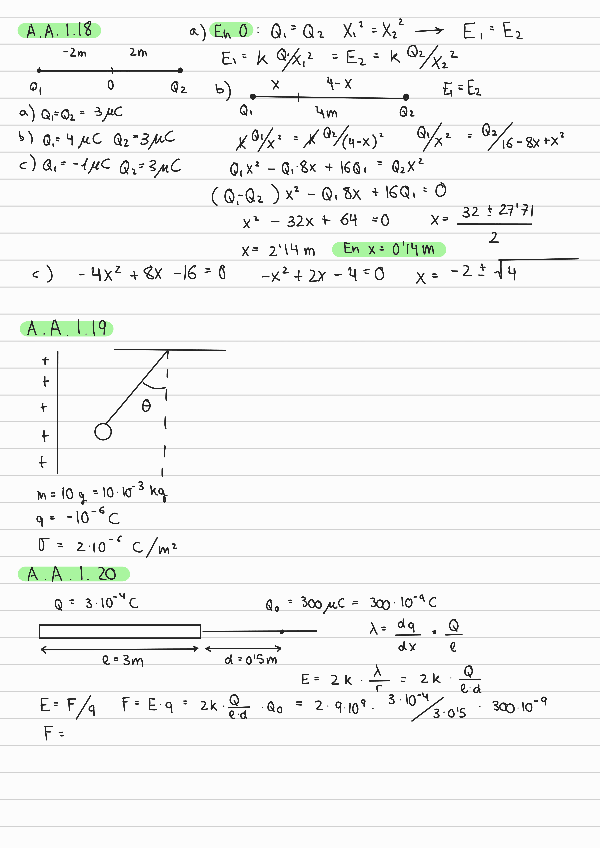 A.A.1.18
-2m 2m
Q₁ 0 Q₂
a) Q₁=Q₂ = 3 μC
b) Q₁ = 4 μC Q₂ = 3 μC
c) Q₁ = -1 μC Q₂ = 3 μC
a) En 0 : Q₁ = Q₂ X₁² = X₂² → E₁ = E₂
E₁ = k Q₁/X₁² = E₂ = k Q₂/X₂²
b) x 4-x E₁ = E₂
Q₁ 4m Q₂
k Q₁/x² = k Q₂/(4-x)² Q₁/x² = Q₂/16-8x+x²
Q₁x² - Q₁·8x + 16Q₁ = Q₂x²
(Q₁-Q₂) x² - Q₁ 8x + 16Q₁ = 0
x² - 32x + 64 = 0 x = 32 ± 27'71 / 2
x = 2'14 m En x = 0'14 m
c) -4x² + 8x - 16 = 0 -x² + 2x - 4 = 0 x = -2 ± √4
A.A.1.19
+
+
+
+
+
θ
m = 10 g = 10·10⁻³ kg
q = -10⁻⁶ C
σ = 2·10⁻⁶ C/m²
A.A.1.20
Q = 3·10⁻⁴ C Q₀ = 300 μC = 300·10⁻⁹ C
λ = dq/dx = Q/e
e = 3m d = 0'5m
E = 2k · λ/r = 2k · Q/e·d
E = F/q F = E·q = 2k · Q/e·d · Q₀ = 2·9·10⁹ · 3·10⁻⁴/3·0'5 · 300·10⁻⁹
F =